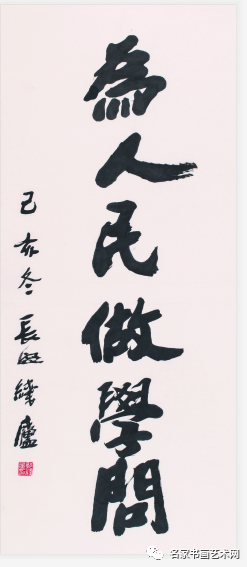 為人民做學問
己亥冬長廬
名家书画艺术网